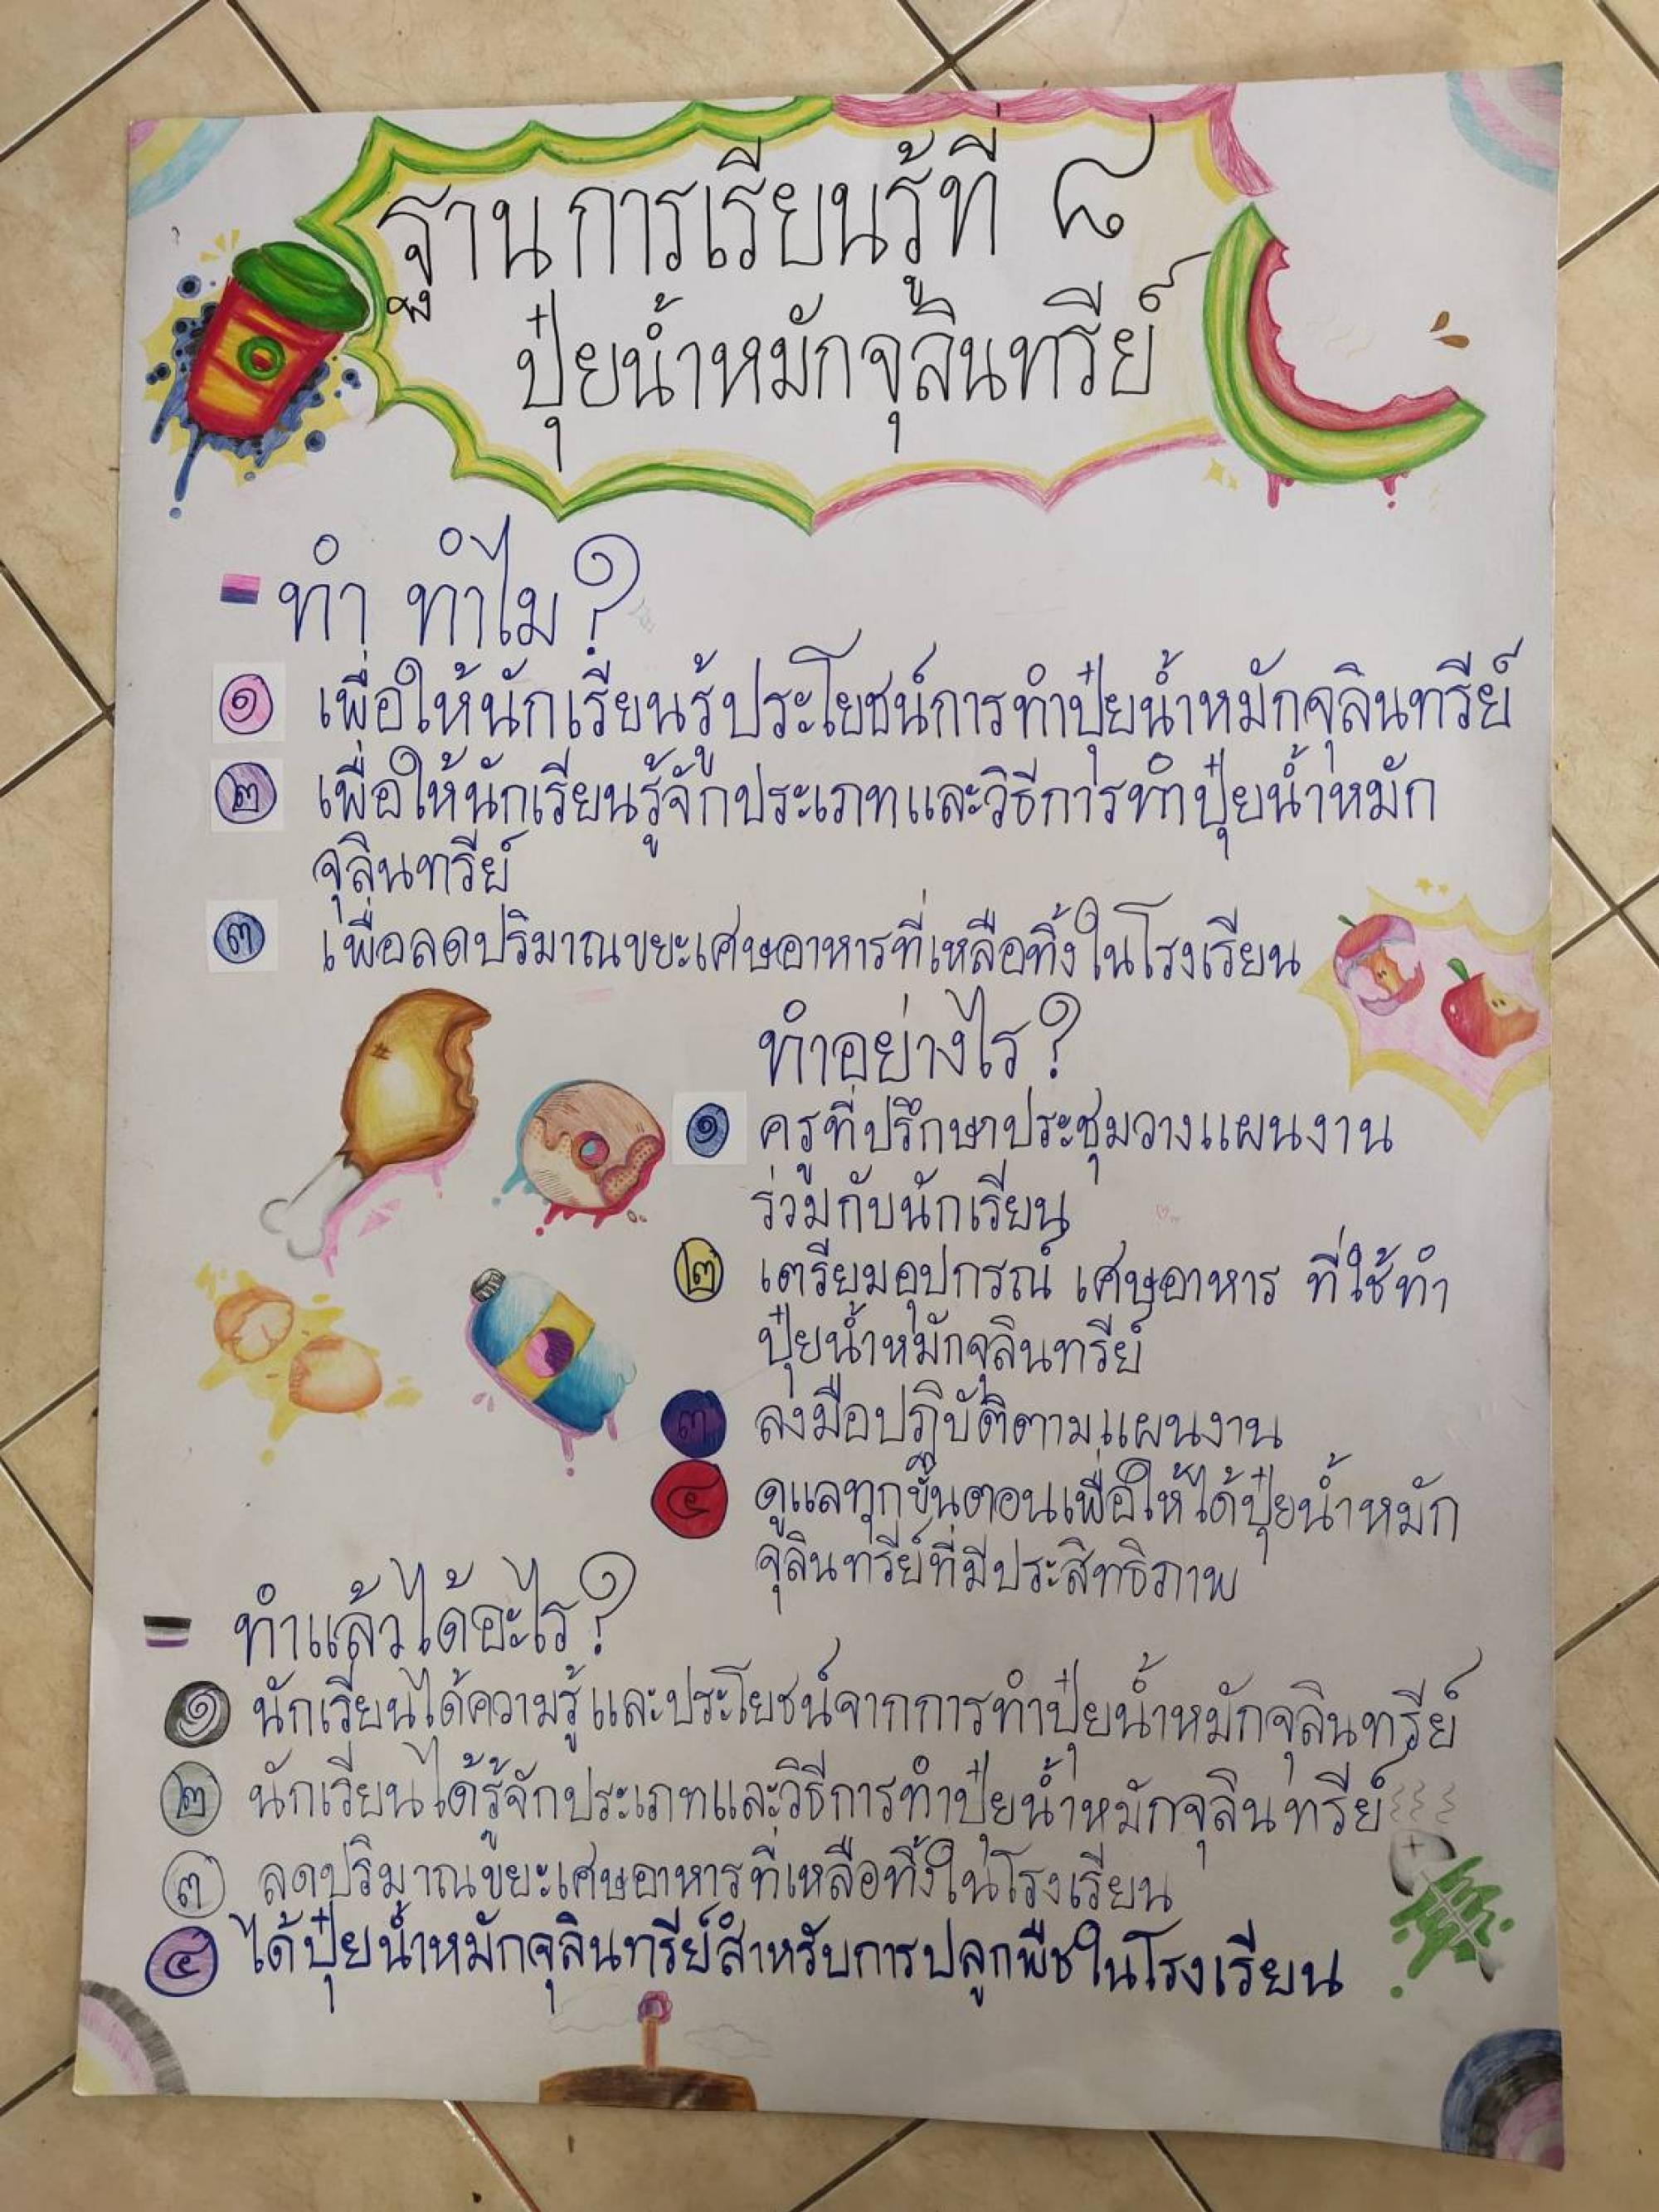 ฐานการเรียนรู้ที่ ๘
ปุ๋ยน้ำหมักจุลินทรีย์
ทำ ทำไม?
๑ เพื่อให้นักเรียนรู้ประโยชน์การทำปุ๋ยน้ำหมักจุลินทรีย์
๒ เพื่อให้นักเรียนรู้จักประเภทและวิธีการทำปุ๋ยน้ำหมัก
จุลินทรีย์
๓ เพื่อลดปริมาณขยะเศษอาหารที่เหลือทิ้งในโรงเรียน
ทำอย่างไร?
๑ ครูที่ปรึกษาประชุมวางแผนงาน
ร่วมกับนักเรียน
๒ เตรียมอุปกรณ์ เศษอาหาร ที่ใช้ทำ
ปุ๋ยน้ำหมักจุลินทรีย์
๓ ลงมือปฏิบัติตามแผนงาน
๔ ดูแลทุกขั้นตอนเพื่อให้ได้ปุ๋ยน้ำหมัก
จุลินทรีย์ที่มีประสิทธิภาพ
ทำแล้วได้อะไร?
๑ นักเรียนได้ความรู้และประโยชน์จากการทำปุ๋ยน้ำหมักจุลินทรีย์
๒ นักเรียนได้รู้จักประเภทและวิธีการทำปุ๋ยน้ำหมักจุลินทรีย์
๓ ลดปริมาณขยะเศษอาหารที่เหลือทิ้งในโรงเรียน
๔ ได้ปุ๋ยน้ำหมักจุลินทรีย์สำหรับการปลูกพืชในโรงเรียน